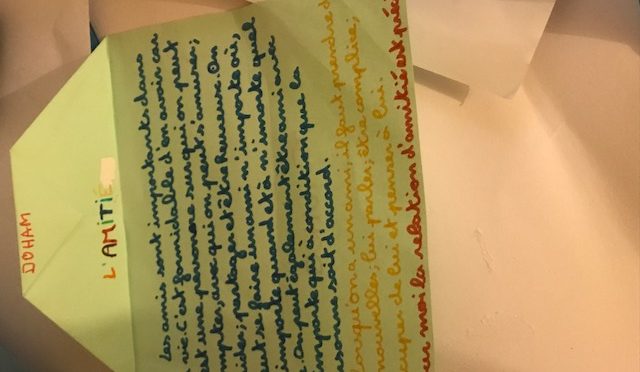 DOHAM
L'AMITIÉ
Les amis sont importants dans
vie: c'est formidable d'en avoir car
est une personne sur qui on peut
mpter, avec qui on peut s'amuser,
ider, partager et être heureux. On
eut se faire un ami n'importe où,
importe quand et à n'importe quel
e. On peut également être ami avec
importe qui à condition que la
sonne soit d'accord.
orsqu'on a un ami, il faut prendre d
nouvelles, lui parler, être complice,
cuper de lui et penser à lui.
ur moi la relation d'amitié est préci